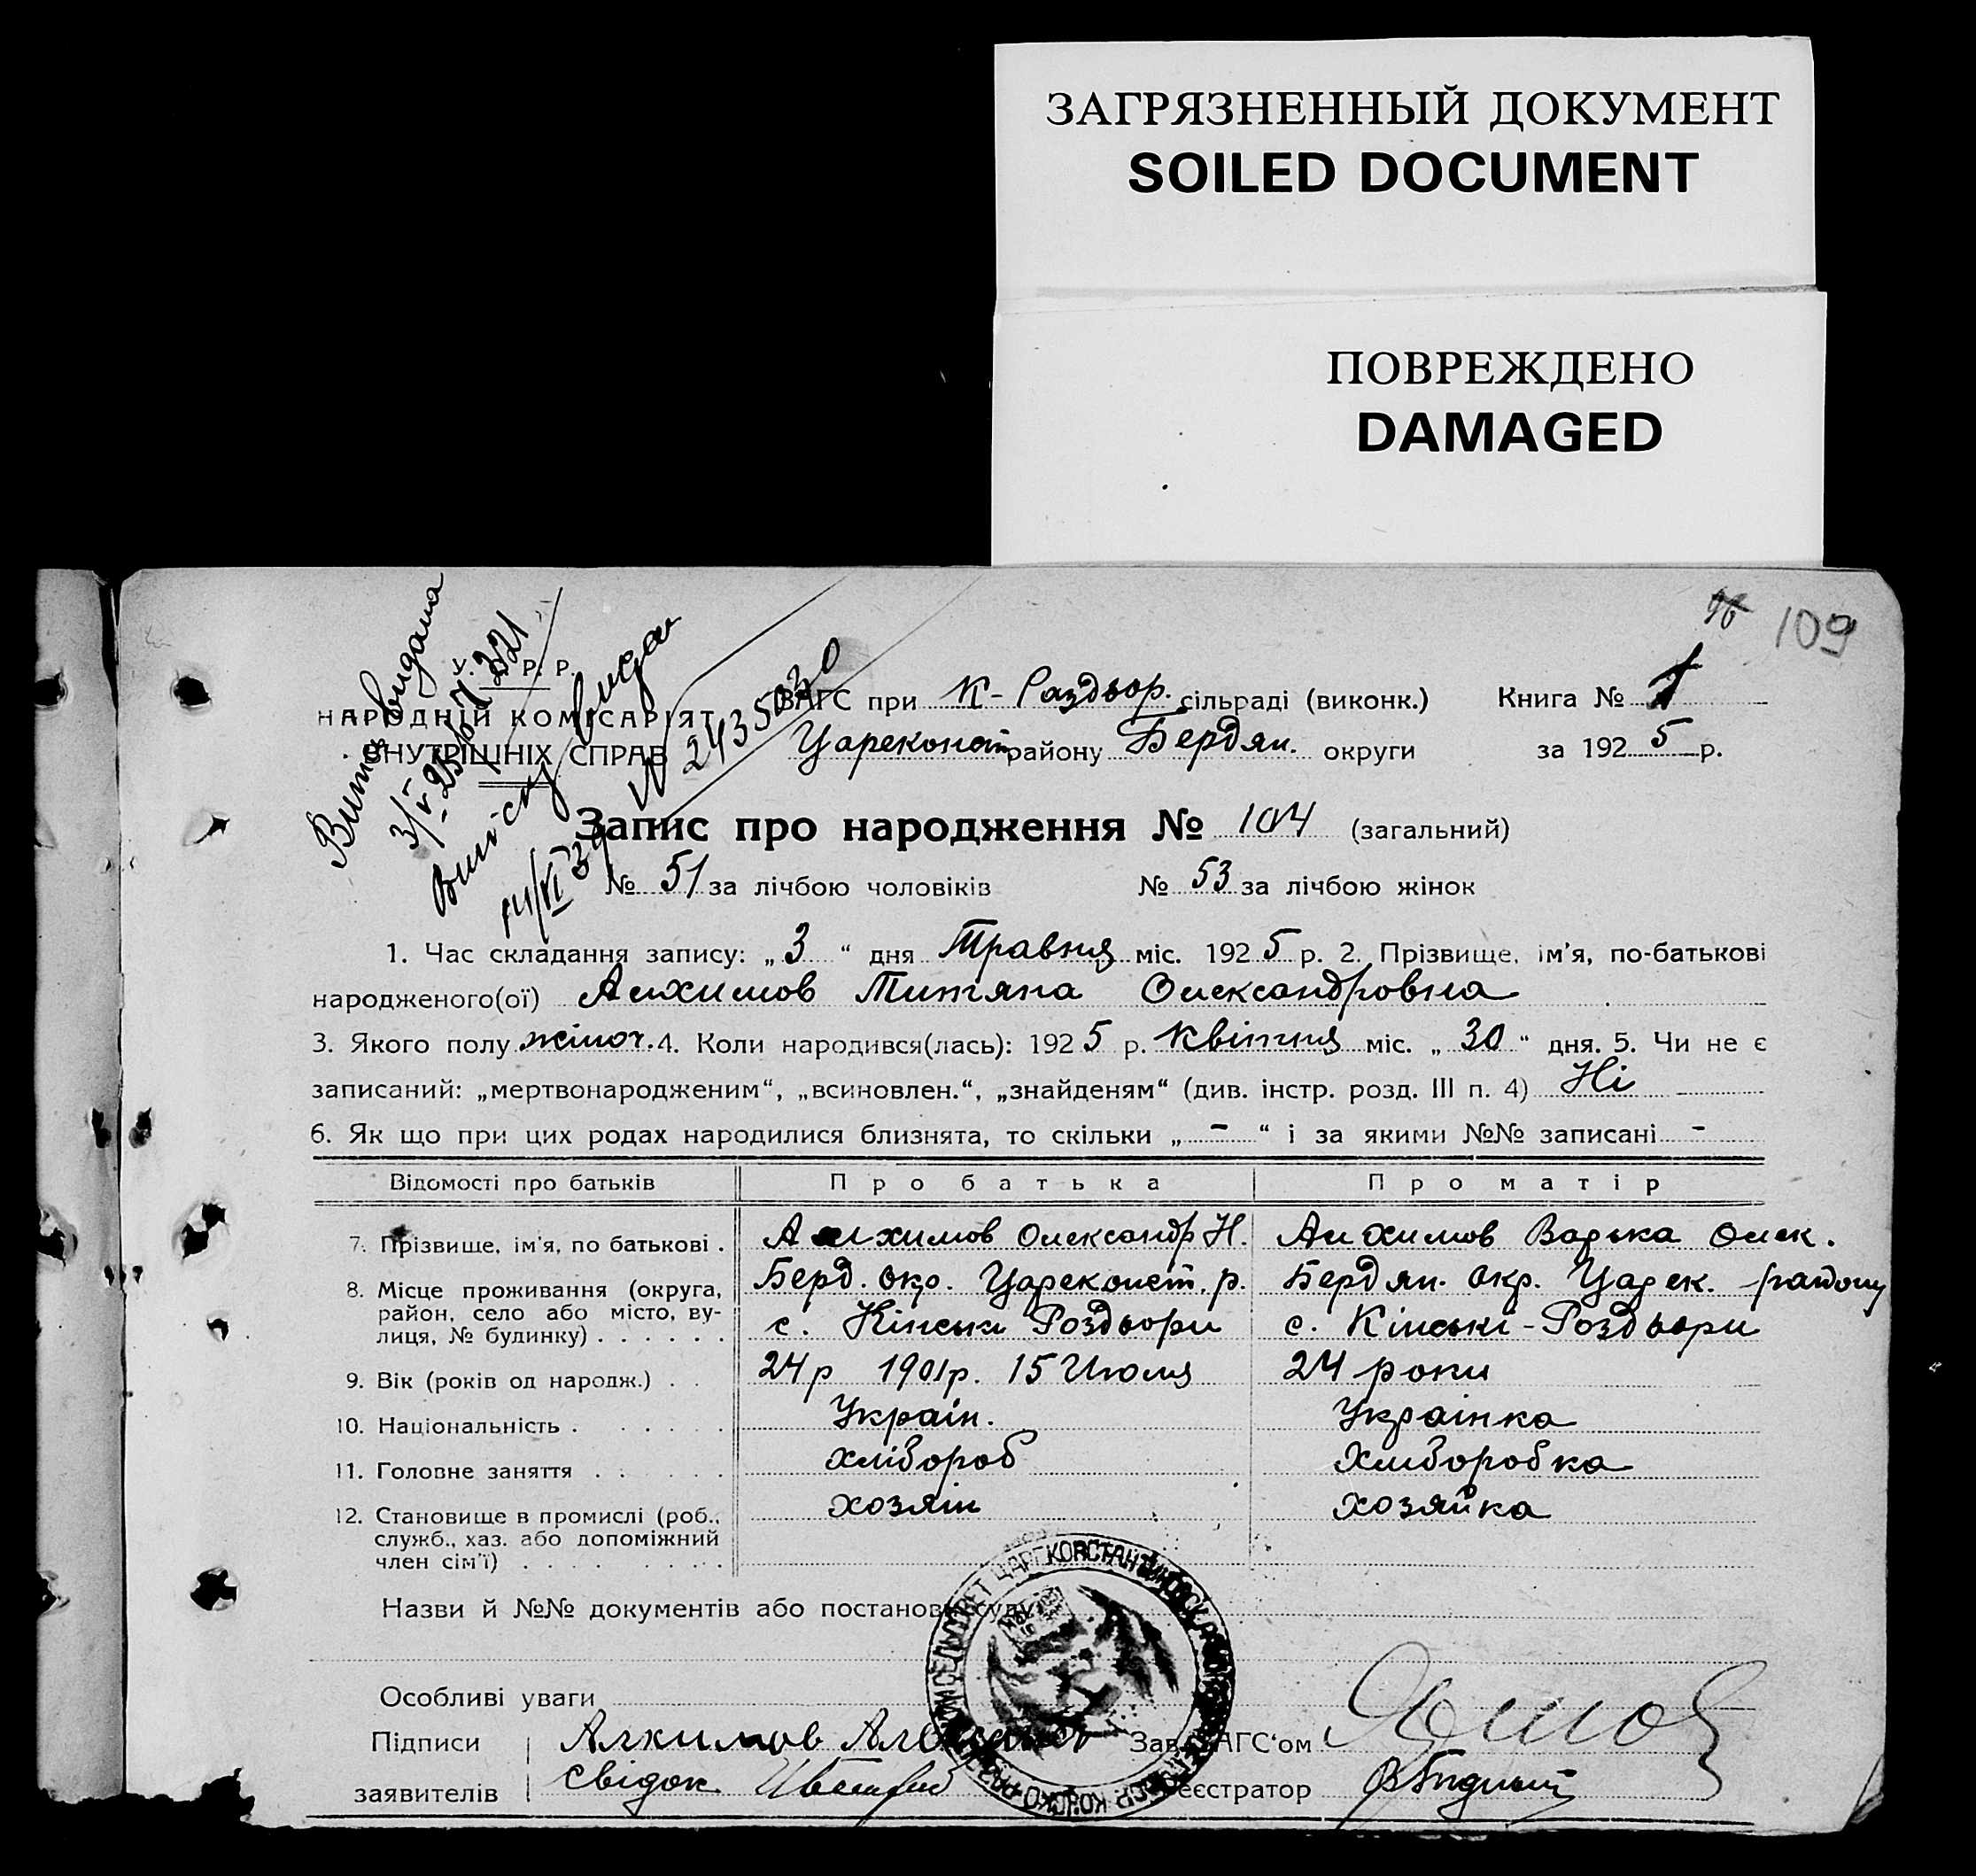 ЗАГРЯЗНЕННЫЙ ДОКУМЕНТ
SOILED DOCUMENT
ПОВРЕЖДЕНО
DAMAGED
109
Витяг видана
3/V-25 р. № 321
Виписку видан
14/VI 39 № 2435030
У. Р. Р.
НАРОДНІЙ КОМІСАРІЯТ
ВНУТРІШНІХ СПРАВ
ЗАГС при К-Раздвор. сільраді (виконк.) Книга № 1
Цареконст району Бердян. округи за 1925 р.
Запис про народження № 104 (загальний)
№ 51 за лічбою чоловіків № 53 за лічбою жінок
1. Час складання запису: „3“ дня Травня міс. 1925 р. 2. Прізвище, ім'я, по-батькові
народженого(ої) Алхимов Титяна Олександровна
3. Якого полу жіноч. 4. Коли народився(лась): 1925 р. Квітня міс. „30“ дня. 5. Чи не є
записаний: „мертвонародженим“, „всиновлен.“, „знайденям“ (див. інстр. розд. III п. 4) Ні
6. Як що при цих родах народилися близнята, то скільки „-“ і за якими №№ записані -
Відомості про батьків Про батька Про матір
7. Прізвище, ім'я, по батькові . Алхимов Олександр Н. Алхимов Варька Олек.
8. Місце проживання (округа, район, село або місто, вулиця, № будинку) . . . . . . Берд. окр. Цареконст. р. Бердян. окр. Царек. району
с. Кінськи Роздвори с. Кінські-Роздвори
9. Вік (років од народж.) . . 24 р 1901 р. 15 Июля 24 роки
10. Національність . . . . . . Україн. Українка
11. Головне заняття . . . . . хлібороб Хлиборобка
12. Становище в промислі (роб., служб., хаз. або допоміжний член сім'ї) . . . . . . . . хозяін хозяйка
Назви й №№ документів або постанови суду
Особливі уваги
Підписи Алхимов Зав. ЗАГС'ом
заявителів свідок Реєстратор